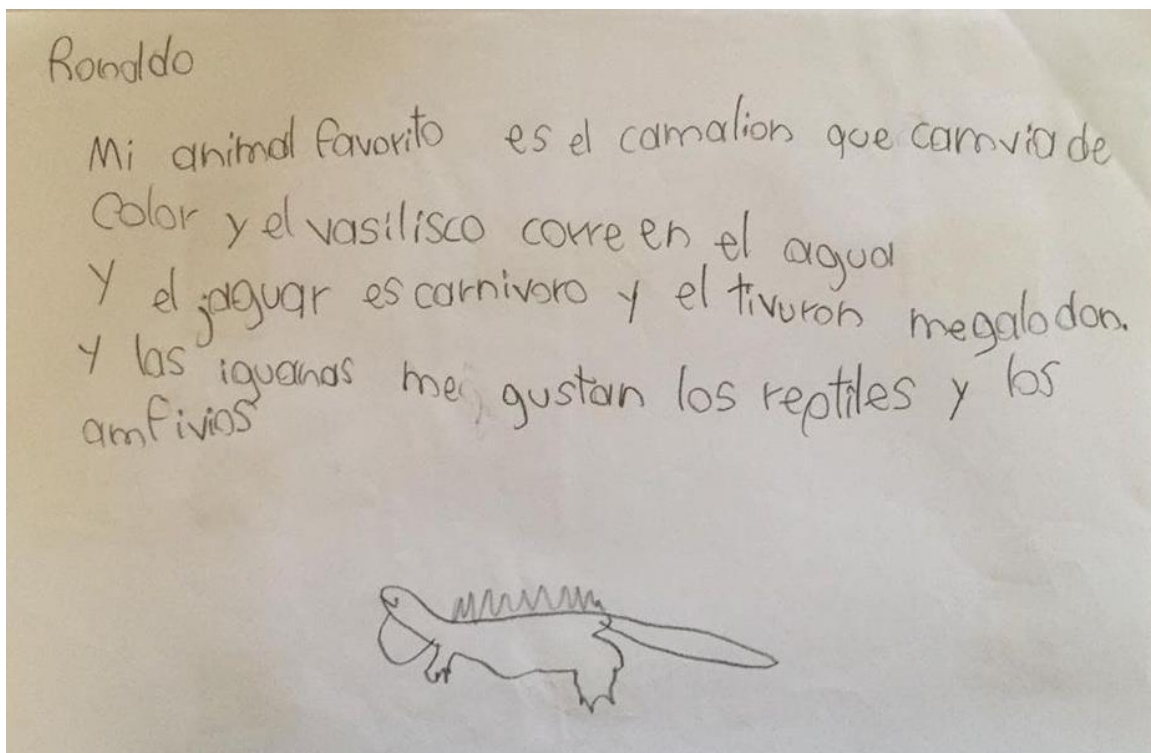 Ronaldo
Mi animal favorito es el camalion que camvia de
color y el vasilisco corre en el agua
Y el jaguar es carnivoro y el tivuron megalodon.
Y las iguanas me gustan los reptiles y los
amfivios